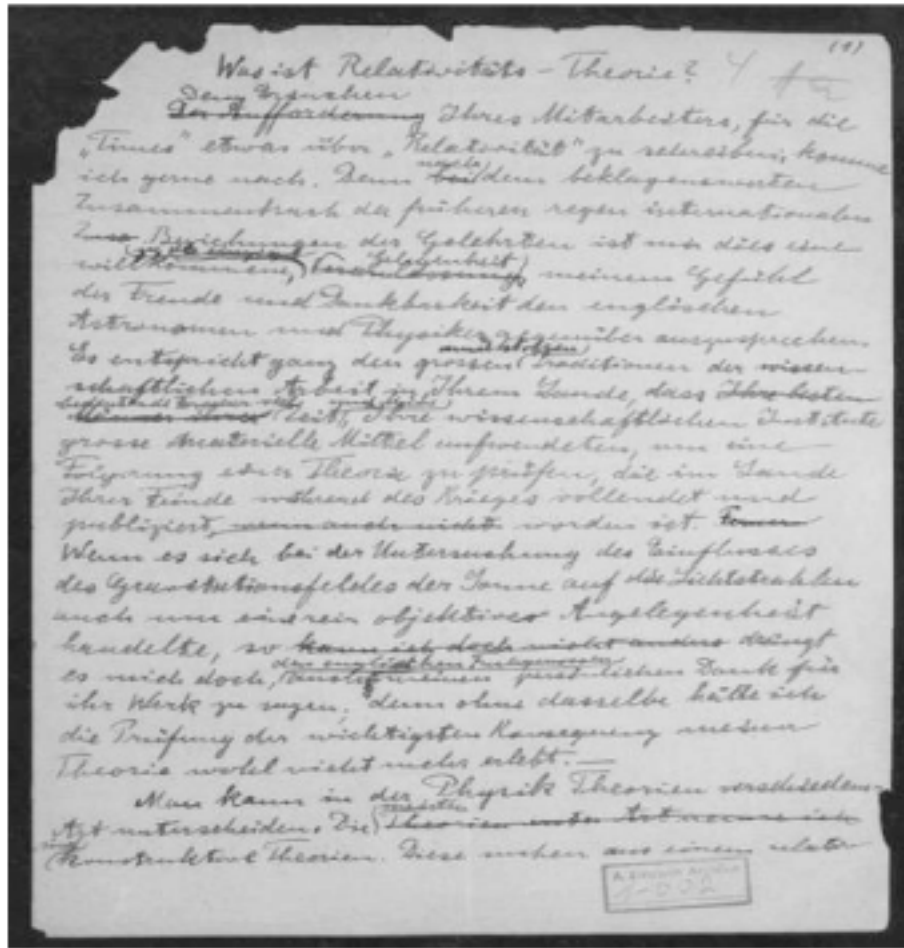 (1)
Was ist Relativitäts-Theorie?
Dem Ersuchen
Der Aufforderung Ihres Mitarbeiters, für die
„Times" etwas über „Relativität" zu schreiben, komme
nach
ich gerne nach. Denn bei dem beklagenswerten
Zusammenbruch der früheren regen internationalen
Beziehungen der Gelehrten ist mir dies eine
Gelegenheit
willkommene, Veranlassung, meinem Gefühl
der Freude und Dankbarkeit den englischen
Astronomen und Physikern gegenüber auszusprechen.
und stolzen
Es entspricht ganz den grossen Traditionen der wissen-
schaftlichen Arbeit in Ihrem Lande, dass Ihre besten
bedeutende Forscher viel
Männer ihre Zeit, Ihre wissenschaftlichen Institute
grosse materielle Mittel aufwendeten, um eine
Folgerung einer Theorie zu prüfen, die im Lande
Ihrer Feinde während des Krieges vollendet und
publiziert, wenn auch nicht worden ist.
Wenn es sich bei der Untersuchung des Einflusses
des Gravitationsfeldes der Sonne auf die Lichtstrahlen
auch um eine rein objektive Angelegenheit
handelte, so kann ich doch nicht anders drängt
den englischen Fachgenossen
es mich doch, meinen persönlichen Dank für
ihr Werk zu sagen; denn ohne dasselbe hätte ich
die Prüfung der wichtigsten Konsequenz meiner
Theorie wohl nicht mehr erlebt. —
Man kann in der Physik Theorien verschiedener
meisten
Art unterscheiden. Die Theorien erster Art nenne ich
konstruktive Theorien. Diese suchen aus einem relativ